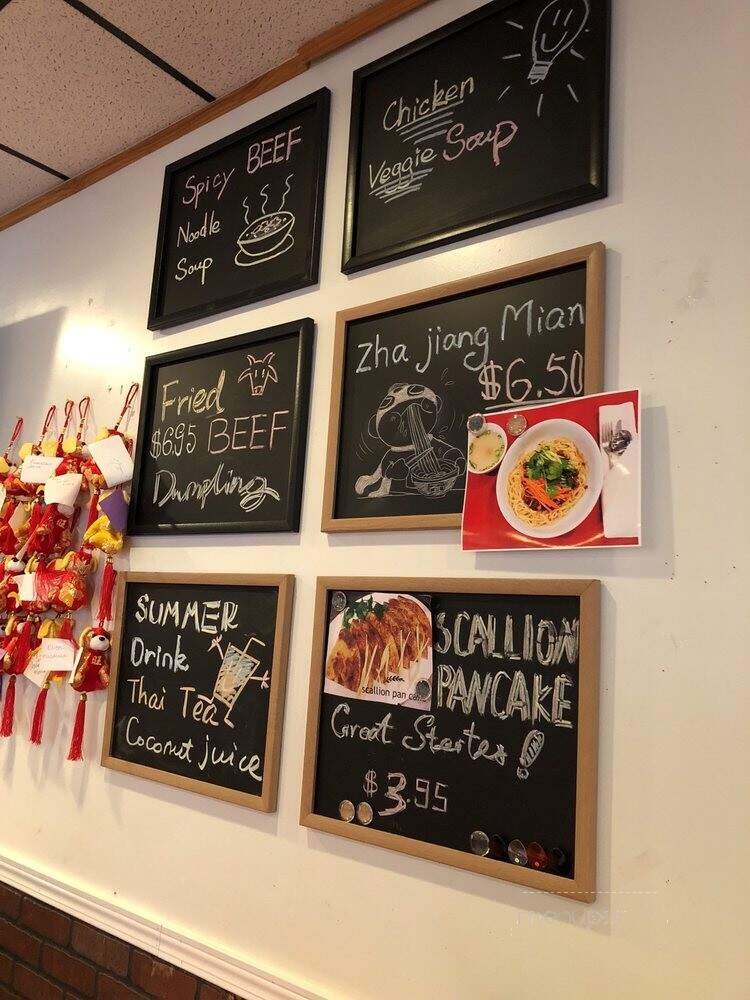 Spicy BEEF
Noodle
Soup
Chicken
Veggie Soup
Fried
$6.95 BEEF
Dumpling
Zha jiang Mian
$6.50
SUMMER
Drink
Thai Tea
Coconut juice
scallion pan
SCALLION
PANCAKE
Great Starter!
$3.95